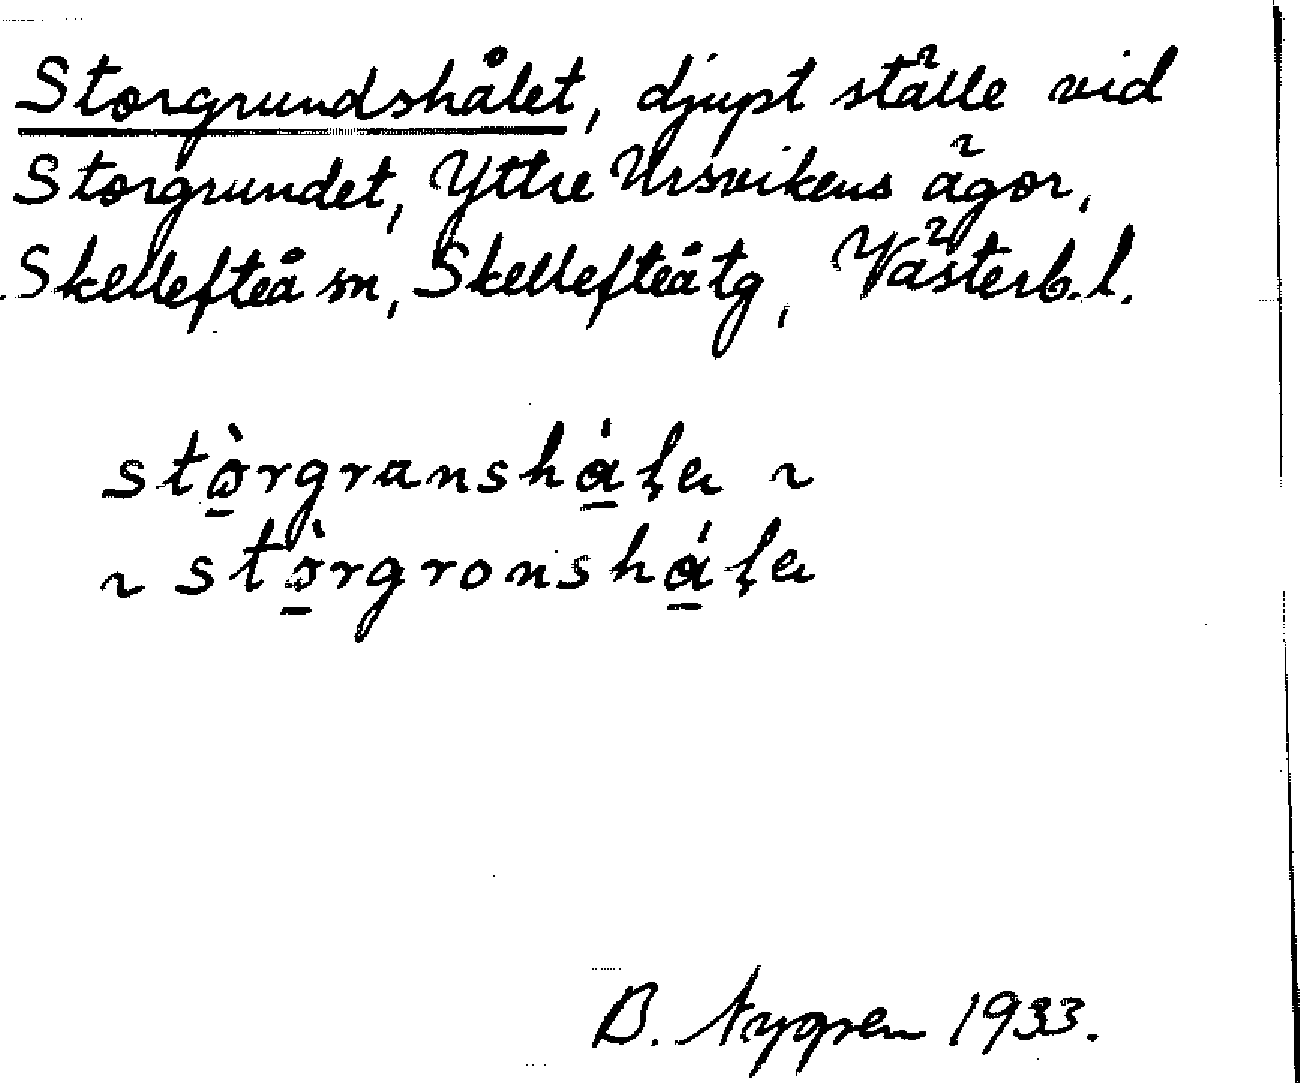 Storgrundshålet, djupt ställe vid
Storgrundet, Yttre Ursvikens ägor,
Skellefteå sn, Skellefteå tg, Västerb. l.
stò̱rgranshá̱ḷa ~
~ stò̱rgronshá̱ḷa
B. Nygren 1933.